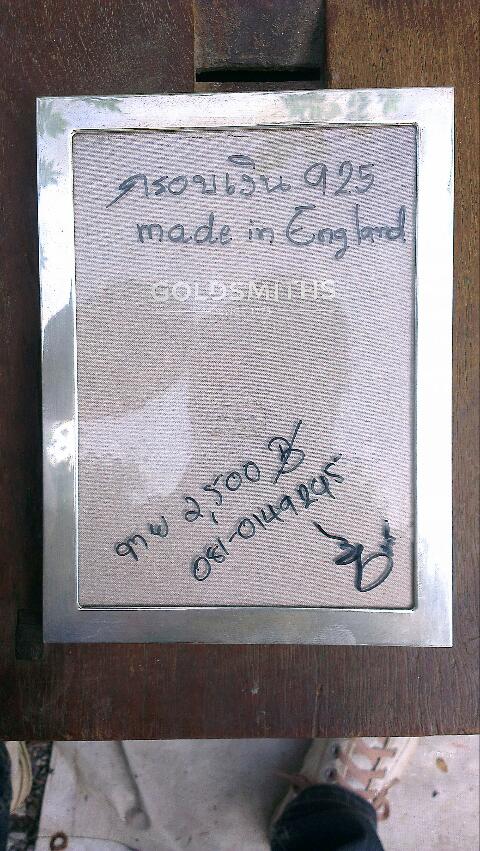 กรอบเงิน 925
made in England
GOLDSMITHS
ขาย 2,500 ฿